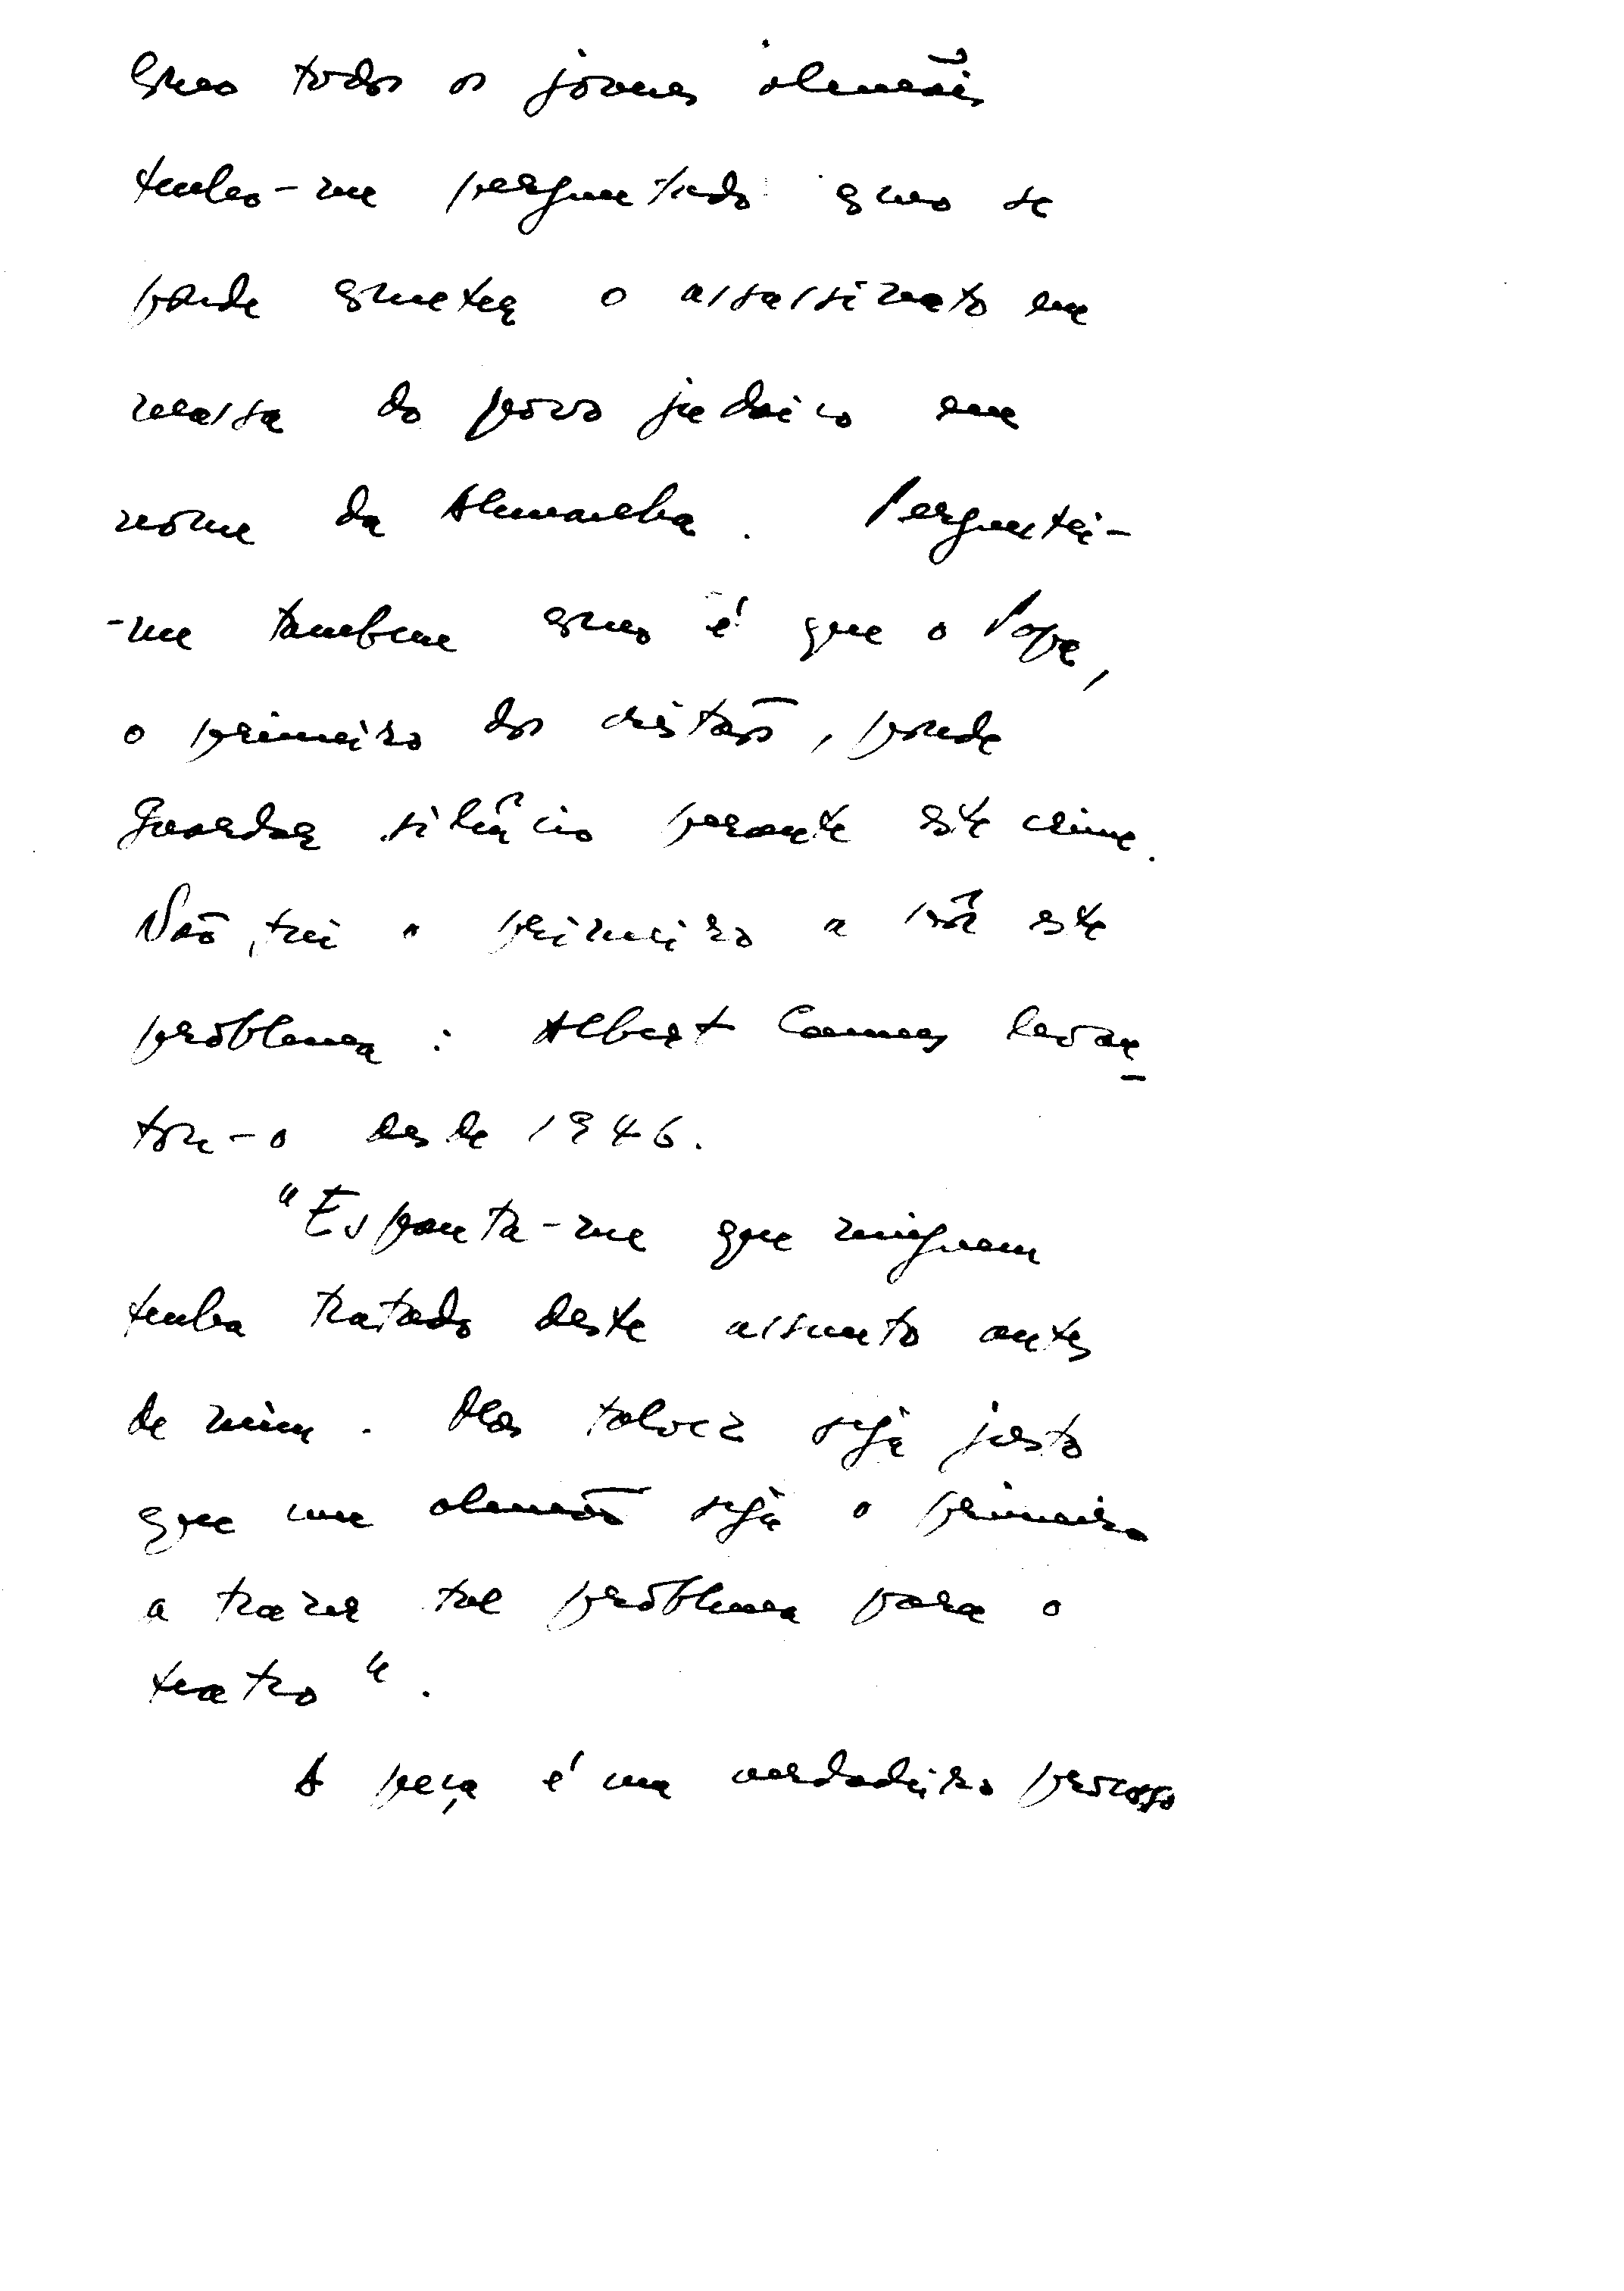 Como todos os jovens alemães
tenho-me perguntado como se
poude cometer o assassinato em
massa do povo judaico em
nome da Alemanha. Perguntei-
-me tambem como é que o Papa,
o primeiro dos cristãos, poude
guardar silêncio perante este crime.
Não fui o primeiro a pôr este
problema: Albert Camus levan-
tou-o desde 1946.
"Espanta-me que ninguem
tenha tratado deste assunto antes
de mim. Mas talvez seja justo
que um alemão seja o primeiro
a trazer tal problema para o
teatro".
A peça é um verdadeiro processo